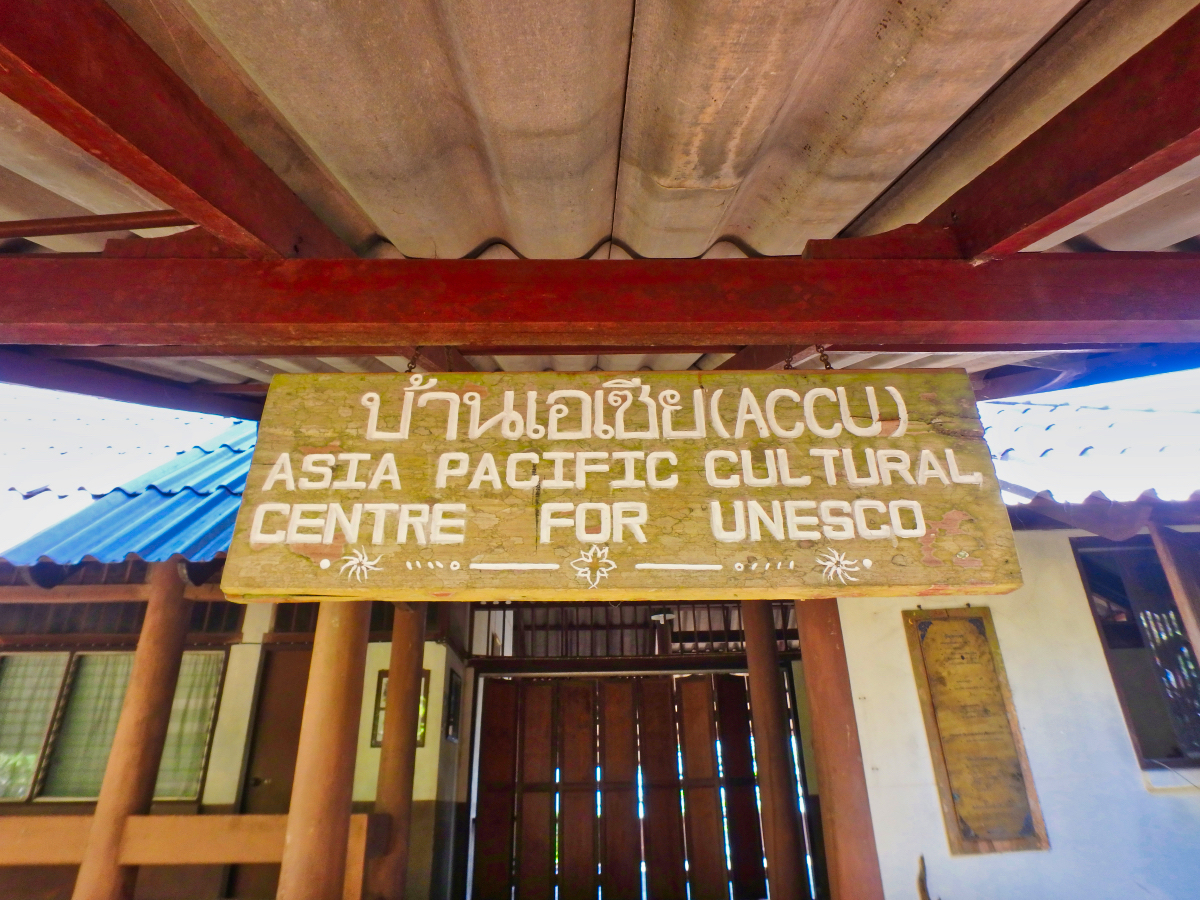 บ้านเอเซีย(ACCU)
ASIA PACIFIC CULTURAL
CENTRE FOR UNESCO